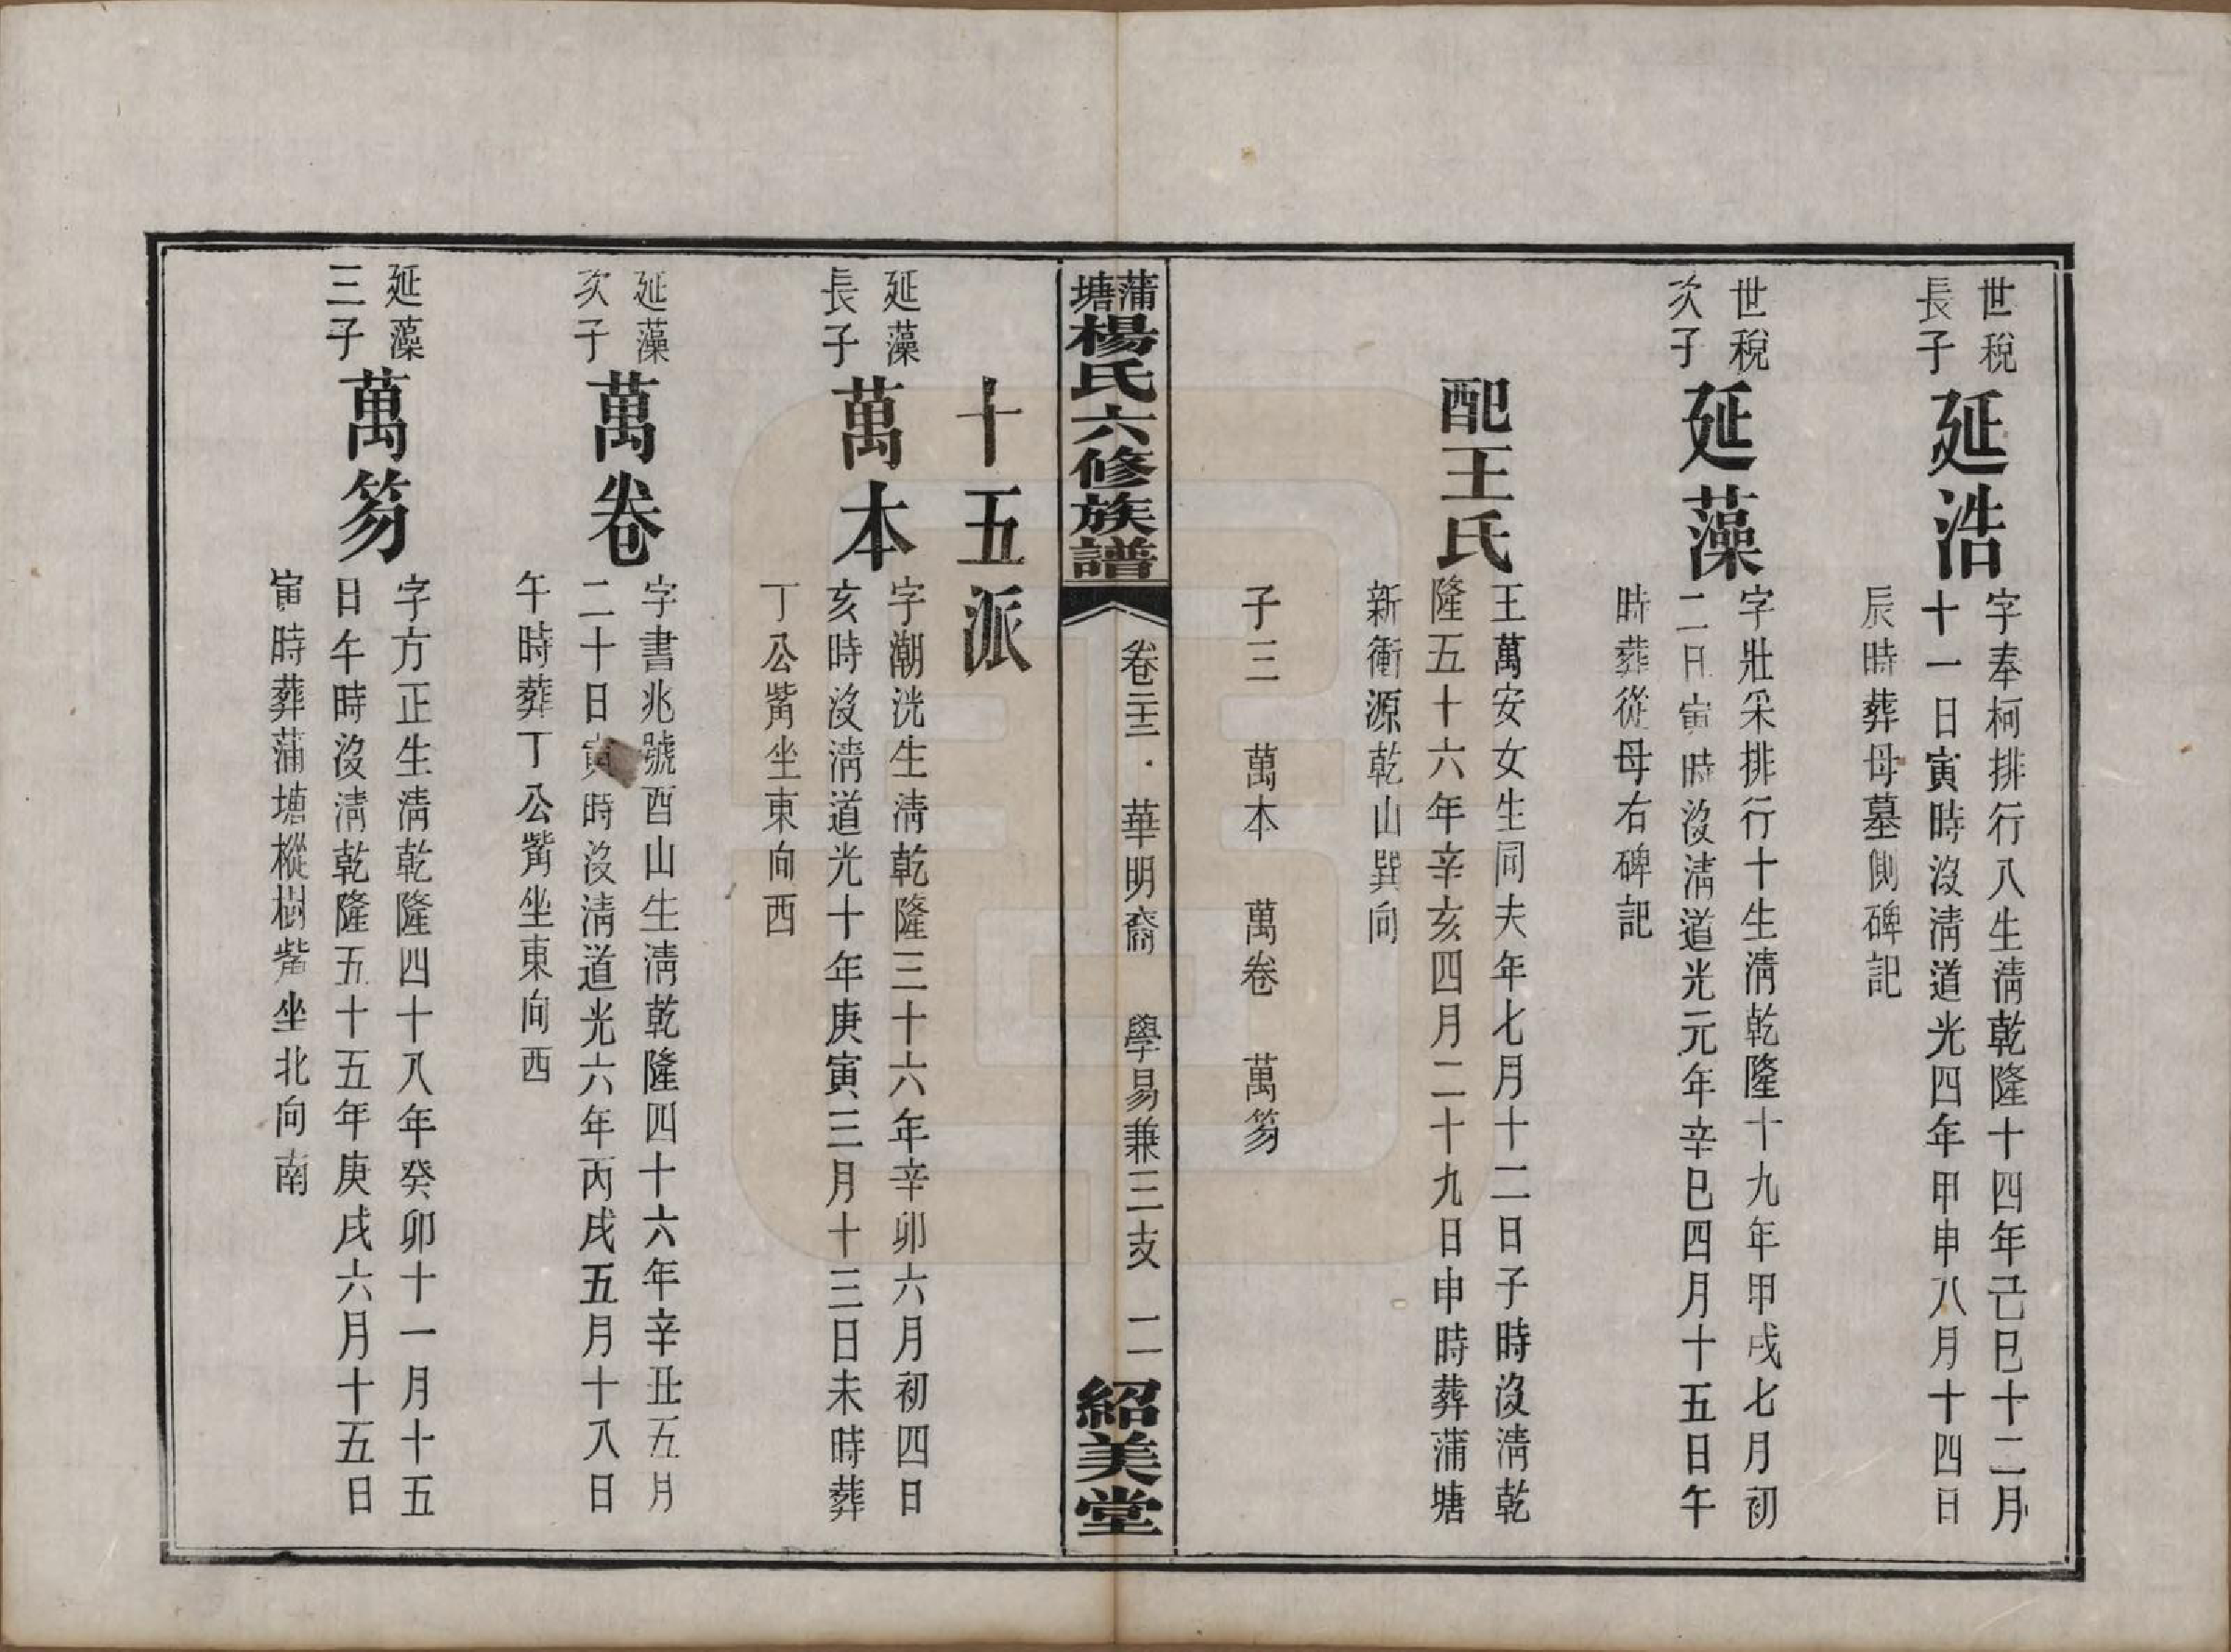 世稅
長子
延浩
字奉柯排行八生淸乾隆十四年己巳十二月
十一日寅時沒淸道光四年甲申八月十四日
辰時葬母墓側碑記
世稅
次子
延藻
字壯采排行十生淸乾隆十九年甲戌七月初
二日寅時沒淸道光元年辛巳四月十五日午
時葬從母右碑記
配王氏
王萬安女生同夫年七月十二日子時沒淸乾
隆五十六年辛亥四月二十九日申時葬蒲塘
新衝源乾山巽向
子三 萬本 萬卷 萬笏
蒲塘楊氏六修族譜
卷二十三·華明裔 學易兼三支 二
紹美堂
十五派
延藻
長子
萬本
字潮洸生淸乾隆三十六年辛卯六月初四日
亥時沒淸道光十年庚寅三月十三日未時葬
丁公觜坐東向西
延藻
次子
萬卷
字書兆號酉山生淸乾隆四十六年辛丑五月
二十日寅時沒淸道光六年丙戌五月十八日
午時葬丁公觜坐東向西
延藻
三子
萬笏
字方正生淸乾隆四十八年癸卯十一月十五
日午時沒淸乾隆五十五年庚戌六月十五日
寅時葬蒲塘樅樹觜坐北向南